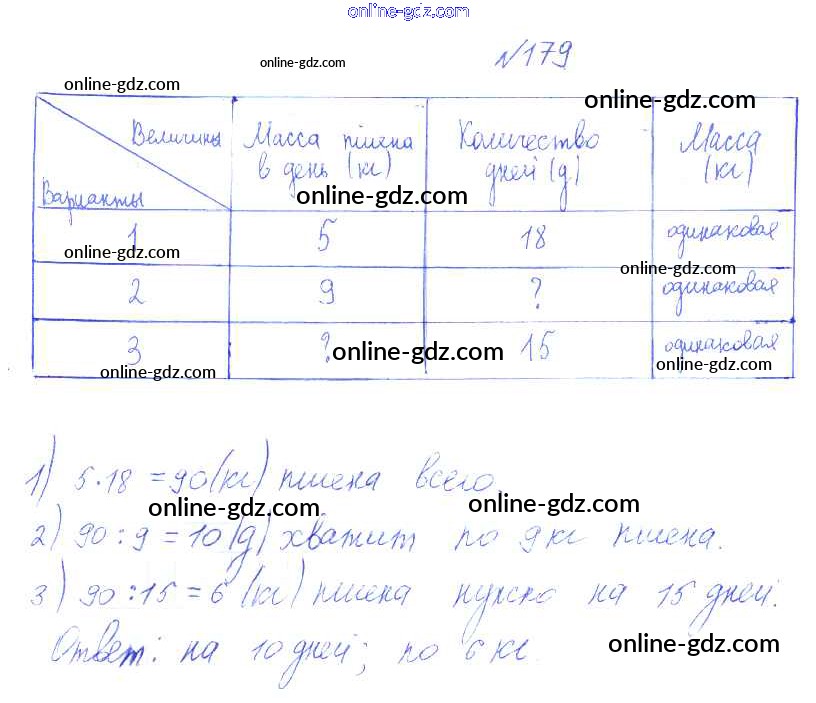 online-gdz.com
№179
online-gdz.com
online-gdz.com
online-gdz.com
Величины Масса пшена Количество Масса
в день (кг) дней (д) (кг)
Варианты
online-gdz.com
1 5 18 одинаковая
online-gdz.com
online-gdz.com
2 9 ? одинаковая
3 ? 15 одинаковая
online-gdz.com
online-gdz.com
online-gdz.com
1) 5·18=90(кг) пшена всего.
online-gdz.com
online-gdz.com
2) 90:9=10(д) хватит по 9 кг пшена.
3) 90:15=6 (кг) пшена нужно на 15 дней.
Ответ: на 10 дней; по 6 кг.
online-gdz.com